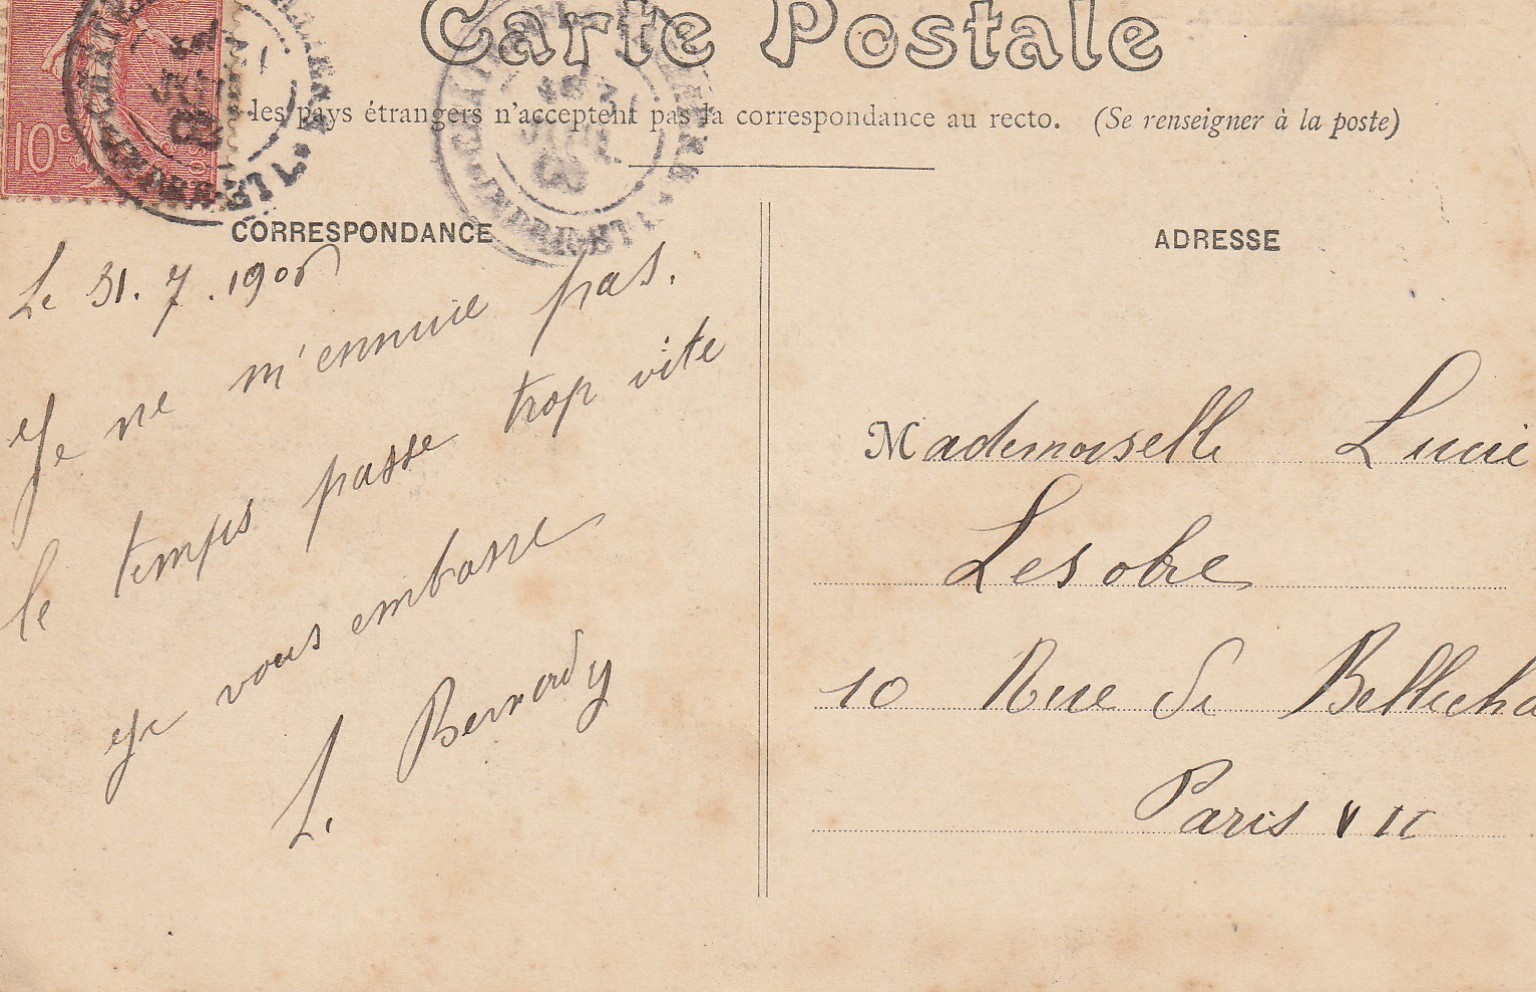 Carte Postale
les pays étrangers n'acceptent pas la correspondance au recto. (Se renseigner à la poste)
10c
CORRESPONDANCE
Le 31. 7. 190
Je ne m'ennuie pas.
le temps passe trop vite
Je vous embrasse
L. Bernardy
ADRESSE
Mademoiselle Lucie
Lesobre
10 Rue de Bellecha
Paris VII